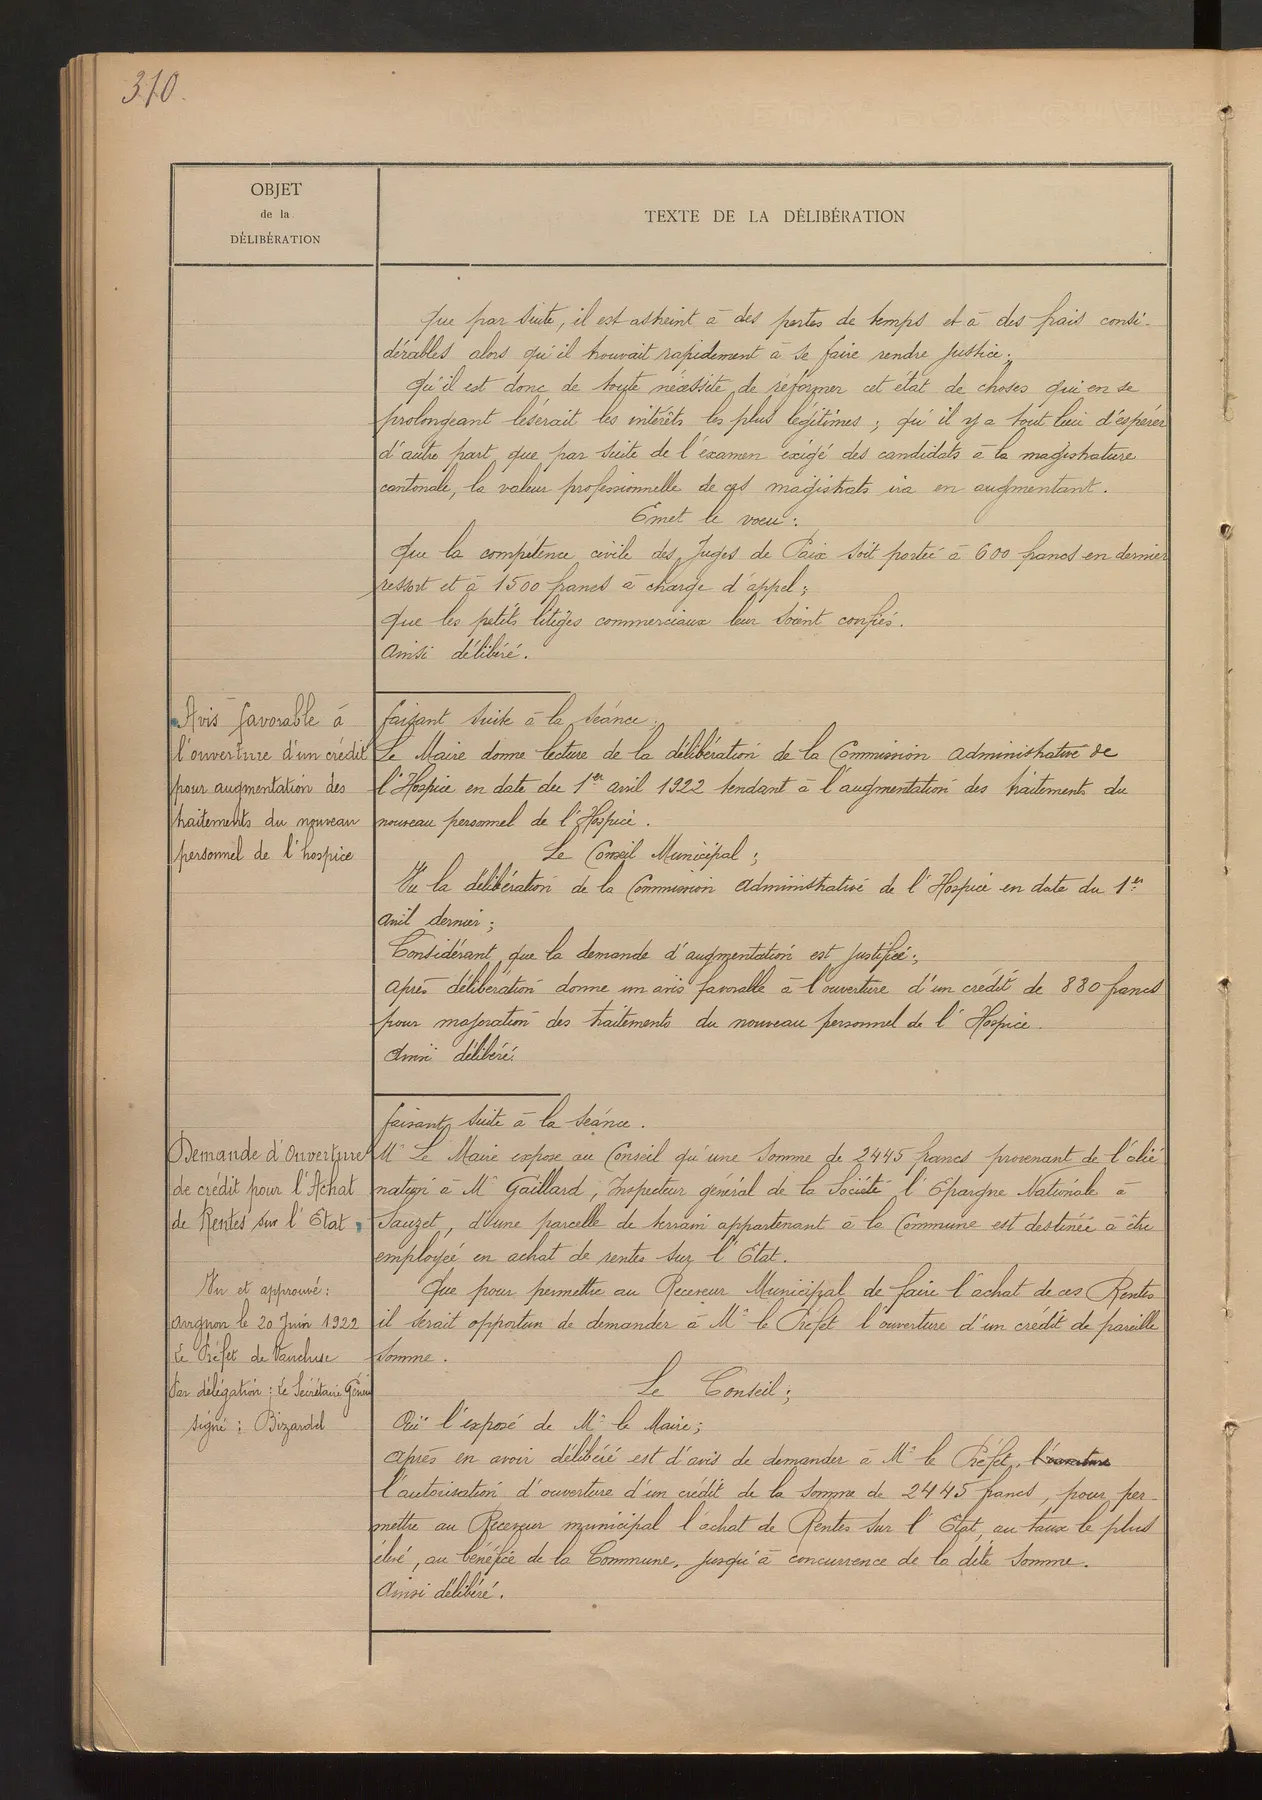 310.
OBJET
de la
DÉLIBÉRATION
TEXTE DE LA DÉLIBÉRATION
Que par suite, il est astreint à des pertes de temps et à des frais consi-
dérables alors qu'il trouvait rapidement à se faire rendre justice;
Qu'il est donc de toute nécessité de réformer cet état de choses qui en se
prolongeant lèserait les intérêts les plus légitimes; qu'il y a tout lieu d'espérer
d'autre part que par suite de l'examen exigé des candidats à la magistrature
cantonale, la valeur professionnelle de ces magistrats ira en augmentant.
Emet le voeu:
Que la compétence civile des Juges de Paix soit portée à 600 francs en dernier
ressort et à 1500 francs à charge d'appel;
Que les petits litiges commerciaux leur soient confiés.
Ainsi délibéré.
Avis favorable à
l'ouverture d'un crédit
pour augmentation des
traitements du nouveau
personnel de l'hospice
faisant suite à la séance.
Le Maire donne lecture de la délibération de la Commission administrative de
l'Hospice en date du 1er avril 1922 tendant à l'augmentation des traitements du
nouveau personnel de l'Hospice.
Le Conseil Municipal;
Vu la délibération de la Commission administrative de l'Hospice en date du 1er
avril dernier;
Considérant que la demande d'augmentation est justifiée;
après délibération donne un avis favorable à l'ouverture d'un crédit de 880 francs
pour majoration des traitements du nouveau personnel de l'Hospice.
Ainsi délibéré.
Demande d'Ouverture
de crédit pour l'Achat
de Rentes sur l'Etat.
Vu et approuvé:
Avignon le 20 Juin 1922
Le Préfet de Vaucluse
Par délégation: Le Secrétaire Génér
signé: Bizardel
faisant suite à la séance.
Mr Le Maire expose au Conseil qu'une somme de 2445 francs provenant de l'alié
nation à Mr Gaillard, Inspecteur général de la Société l'Epargne Nationale à
Sauzet, d'une parcelle de terrain appartenant à la Commune est destinée à être
employée en achat de rentes sur l'Etat.
Que pour permettre au Receveur Municipal de faire l'achat de ces Rentes
il serait opportun de demander à Mr le Préfet l'ouverture d'un crédit de pareille
somme.
Le Conseil;
Ouï l'exposé de Mr le Maire;
après en avoir délibéré est d'avis de demander à Mr le Préfet, l'ouverture
l'autorisation d'ouverture d'un crédit de la somme de 2445 francs, pour per-
mettre au Receveur municipal l'achat de Rentes sur l'Etat, au taux le plus
élevé, au bénéfice de la Commune, jusqu'à concurrence de la dite somme.
Ainsi délibéré.